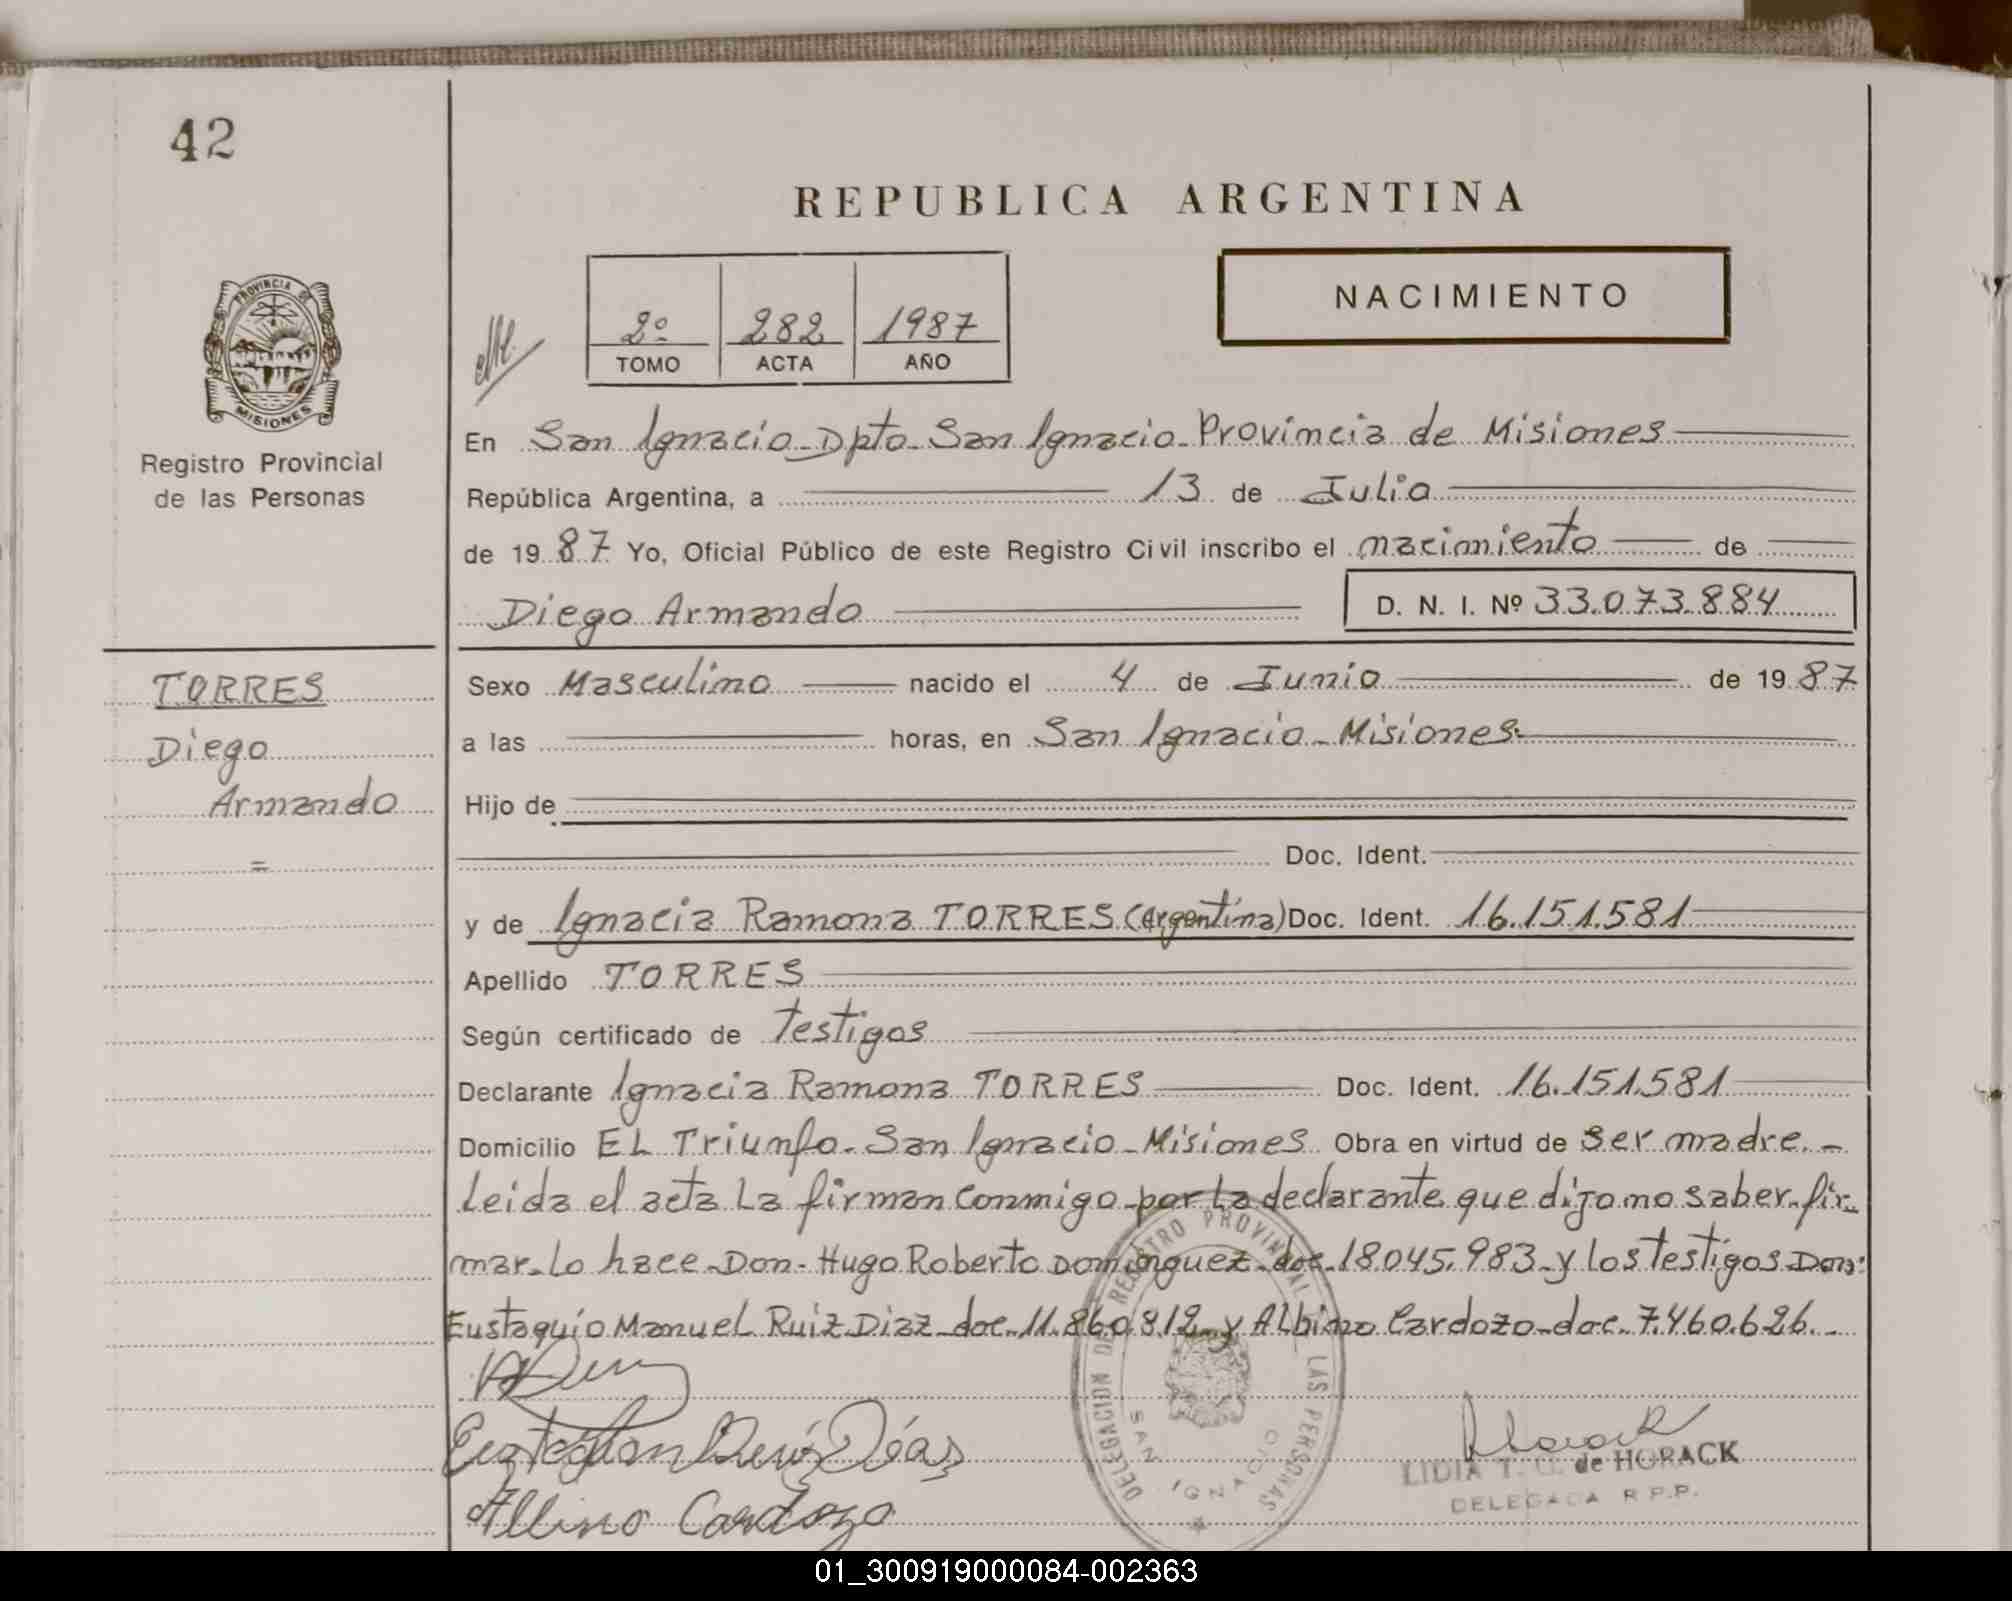 42
REPUBLICA ARGENTINA
NACIMIENTO
2º 282 1987
TOMO ACTA AÑO
PROVINCIA DE
MISIONES
Registro Provincial
de las Personas
En San Ignacio - Dpto - San Ignacio - Provincia de Misiones
República Argentina, a 13 de Julio
de 1987 Yo, Oficial Público de este Registro Civil inscribo el nacimiento de
Diego Armando D. N. I. Nº 33.073.884
TORRES
Diego
Armando
=
Sexo Masculino nacido el 4 de Junio de 1987
a las horas, en San Ignacio - Misiones.
Hijo de
Doc. Ident.
y de Ignacia Ramona TORRES (Argentina) Doc. Ident. 16.151.581
Apellido TORRES
Según certificado de testigos
Declarante Ignacia Ramona TORRES Doc. Ident. 16.151.581
Domicilio EL Triunfo - San Ignacio - Misiones Obra en virtud de ser madre. -
Leida el acta La firman Conmigo - por La declarante que dijo no saber - fir-
mar - Lo hace - Don - Hugo Roberto Dominguez - doc - 18.045.983 - y los testigos - Don:
Eustaquio Manuel Ruiz Diaz - doc - 11.860.812 - y Albino Cardozo - doc - 7.460.626. -
DELEGACION DE REGISTRO PROVINCIAL DE LAS PERSONAS
SAN IGNACIO
Albino Cardozo
Horack
LIDIA T. de HORACK
DELEGADA R.P.P.
01_300919000084-002363